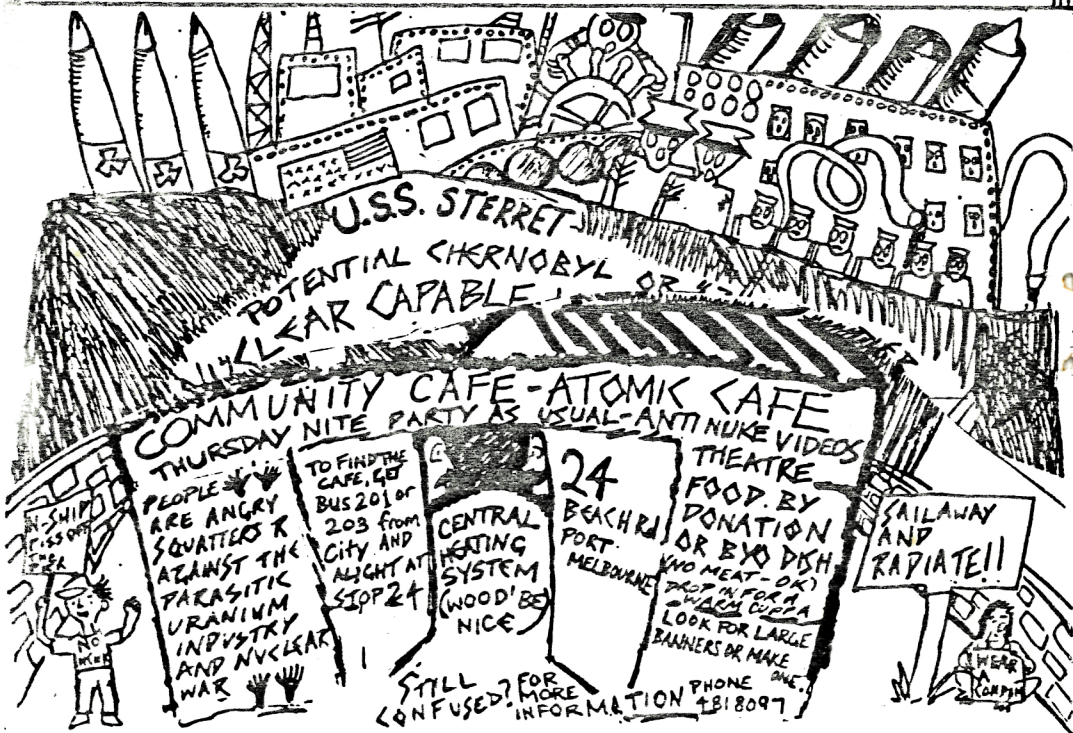 U.S.S. STERRET
POTENTIAL CHERNOBYL OR
CLEAR CAPABLE
COMMUNITY CAFE-ATOMIC CAFE
THURSDAY NITE PARTY AS USUAL-ANTI NUKE VIDEOS
PEOPLE
ARE ANGRY
SQUATTERS R
AGAINST THE
PARASITIC
URANIUM
INDUSTRY
AND NUCLEAR
WAR
TO FIND THE
CAFE, GET
BUS 201 or
203 from
City AND
ALIGHT AT
STOP 24
CENTRAL
HEATING
SYSTEM
(WOOD'BE)
NICE
24
BEACH RD
PORT
MELBOURNE
THEATRE
FOOD. BY
DONATION
OR BYO DISH
(NO MEAT-OK)
DROP IN FOR A
WARM CUPPA
LOOK FOR LARGE
BANNERS OR MAKE
ONE.
STILL
CONFUSED?
FOR
MORE
INFORMATION
PHONE
4818097
N-SHIP
PISS OFF
THE
NO
SAILAWAY
AND
RADIATE!!
WEAR
A
CONDOM